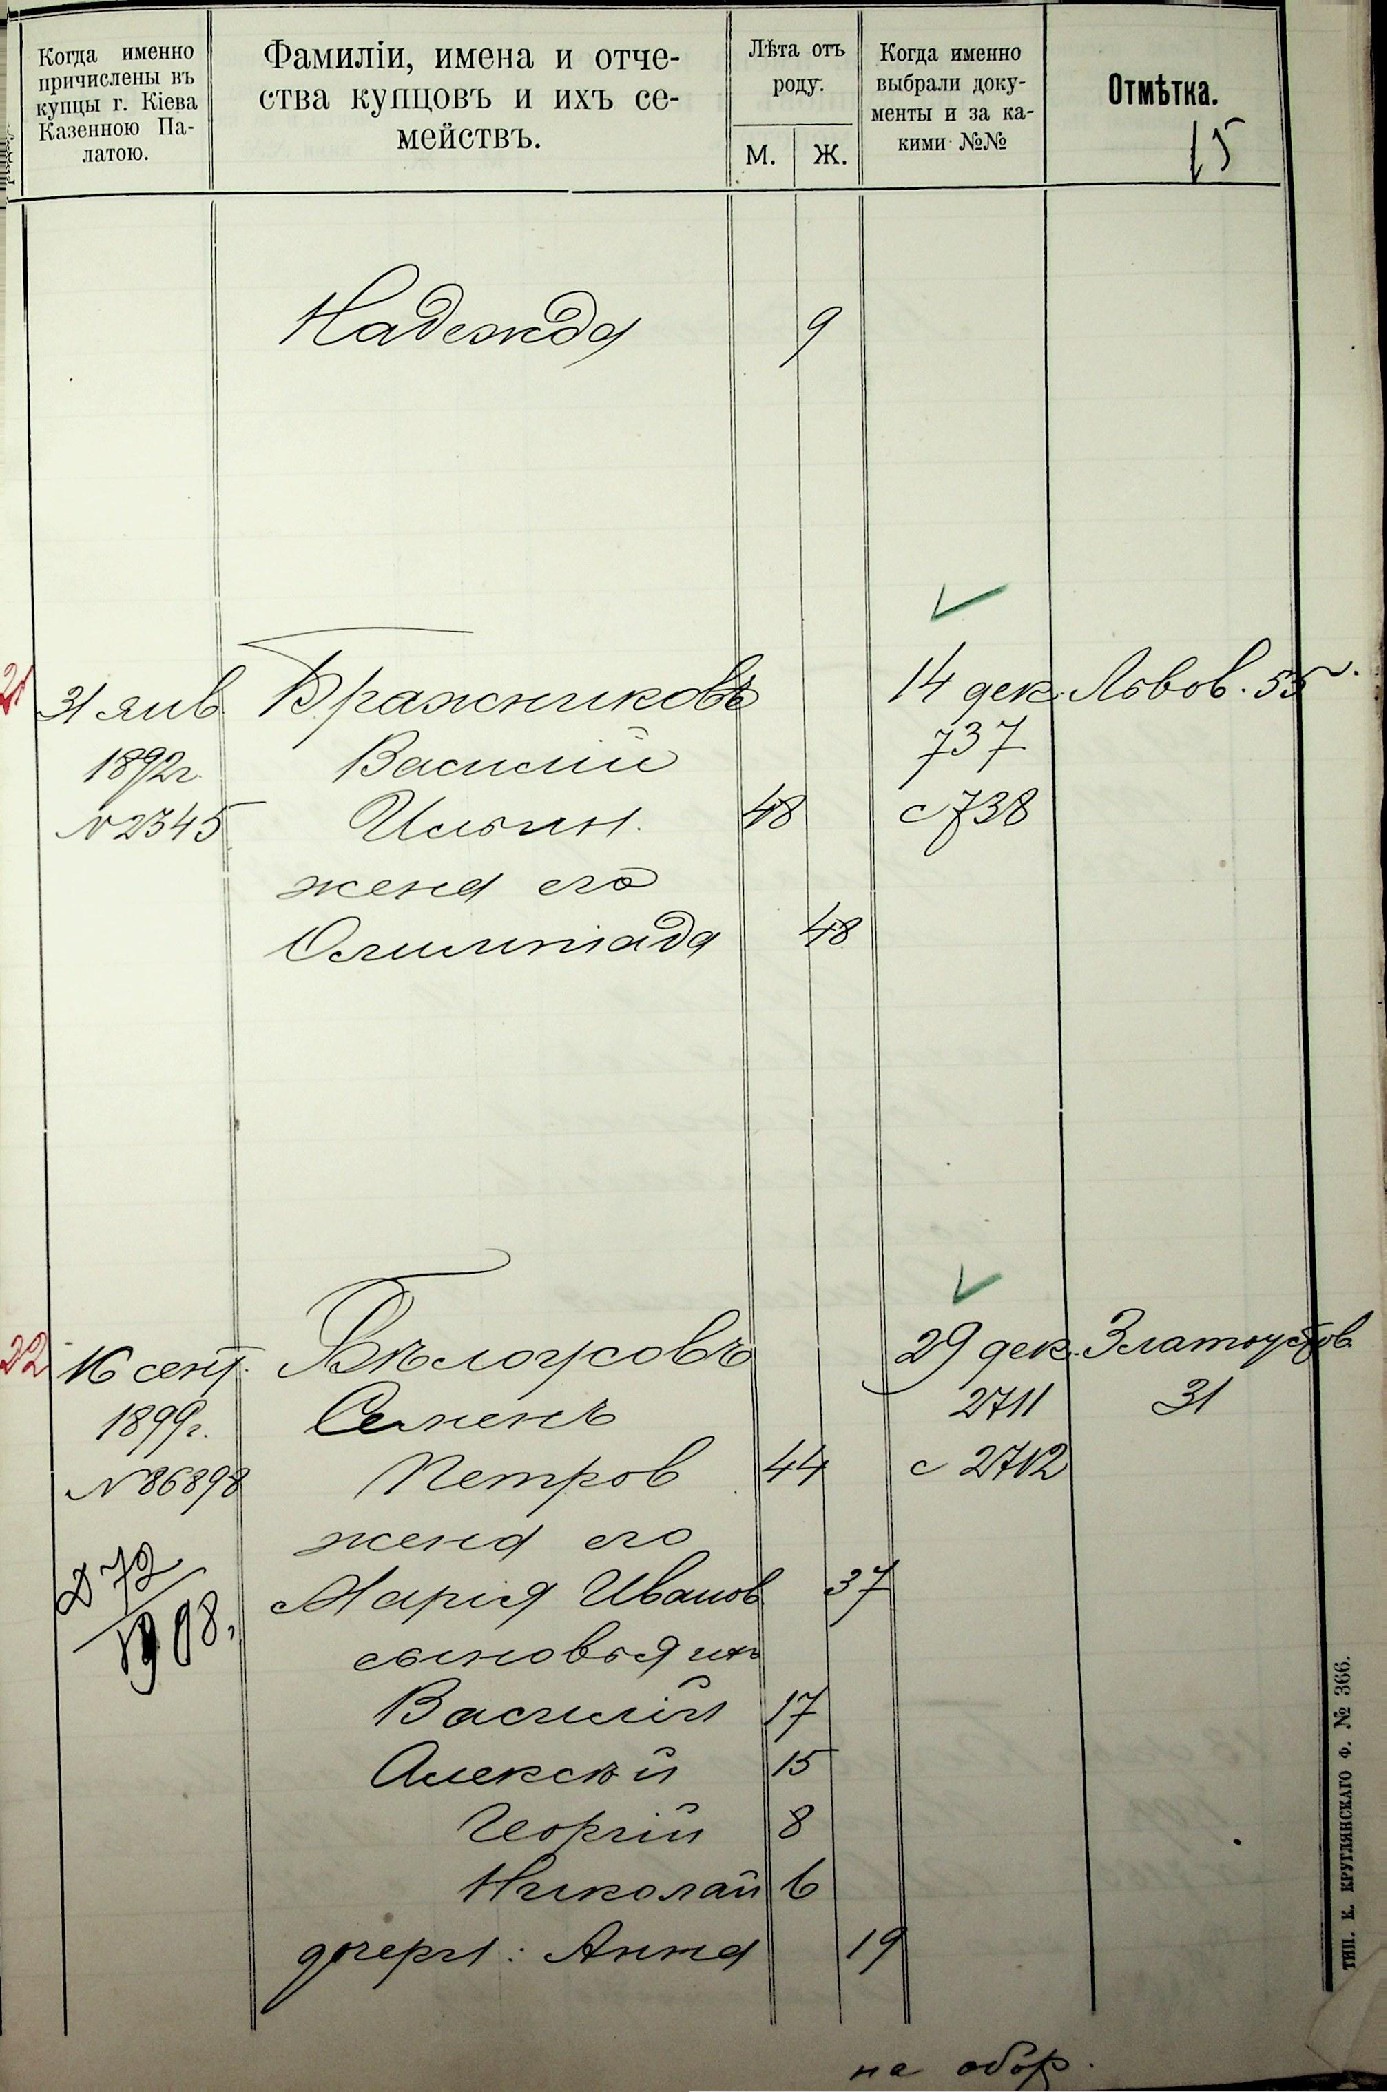 Когда именно
причислены въ
купцы г. Кіева
Казенною Па-
латою.
Фамиліи, имена и отче-
ства купцовъ и ихъ се-
мействъ.
Лѣта отъ
роду.
М. Ж.
Когда именно
выбрали доку-
менты и за ка-
кими №№
Отмѣтка.
15
Надежда 9
31 янв. Бражниковъ 14 дек. Львов. 55
1892г. Василій 737
№ 2345 Ильин. 48 с 738
жена его
Олимпіада 48
22 16 сент. Бѣлоусовъ 29 дек. Златоустов.
1899г. Семенъ 2711 31
№ 86898 Петров 44 с 2712
жена его
72 Марія Иванов 37
1908.
сыновья ихъ
Василій 17
Алексѣй 15
Георгій 8
Николай 6
дочери: Анна 19
на обор.
ТИП. К. КРУГЛЯНСКАГО Ф. № 366.